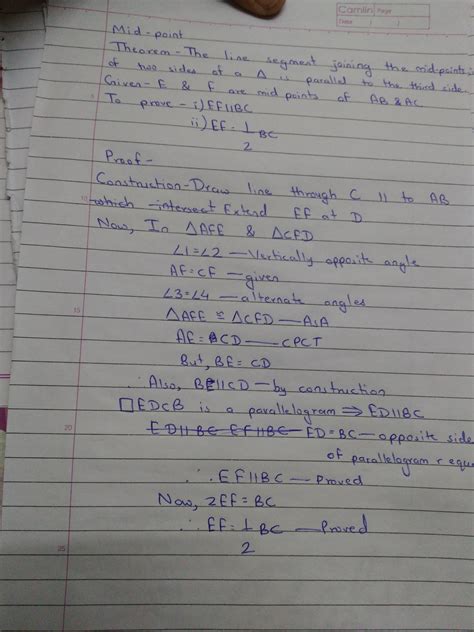 Camlin Page
Date / /
Mid-point
Theorem - The line segment joining the midpoints
of two sides of a Δ is parallel to the third side.
Given - E & F are mid points of AB & AC
To prove - i) EF||BC
ii) EF = 1/2 BC
Proof -
Construction - Draw line through C || to AB
which intersect Extend EF at D
Now, In ΔAFE & ΔCFD
∠1=∠2 — Vertically opposite angle
AF=CF — given
∠3=∠4 — alternate angles
ΔAFE ≅ ΔCFD — ASA
AE=CD — CPCT
But, BE=CD
∴ Also, BE||CD — by construction
□EDCB is a parallelogram ⇒ ED||BC
ED||BC EF||BC ED=BC — opposite side
of parallelogram r equa
∴ EF||BC — Proved
Now, 2EF=BC
∴ EF=1/2 BC — Proved
10
15
20
25